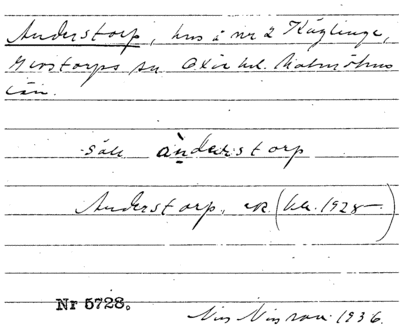 Anderstorp, hus å nr 2 Käglinge,
Glostorps sn Oxie hd. Malmöhus
län.
sålt ànderstorp
Anderstorp, (1925)
Nr 5728.
Nils Nilsson 1936.